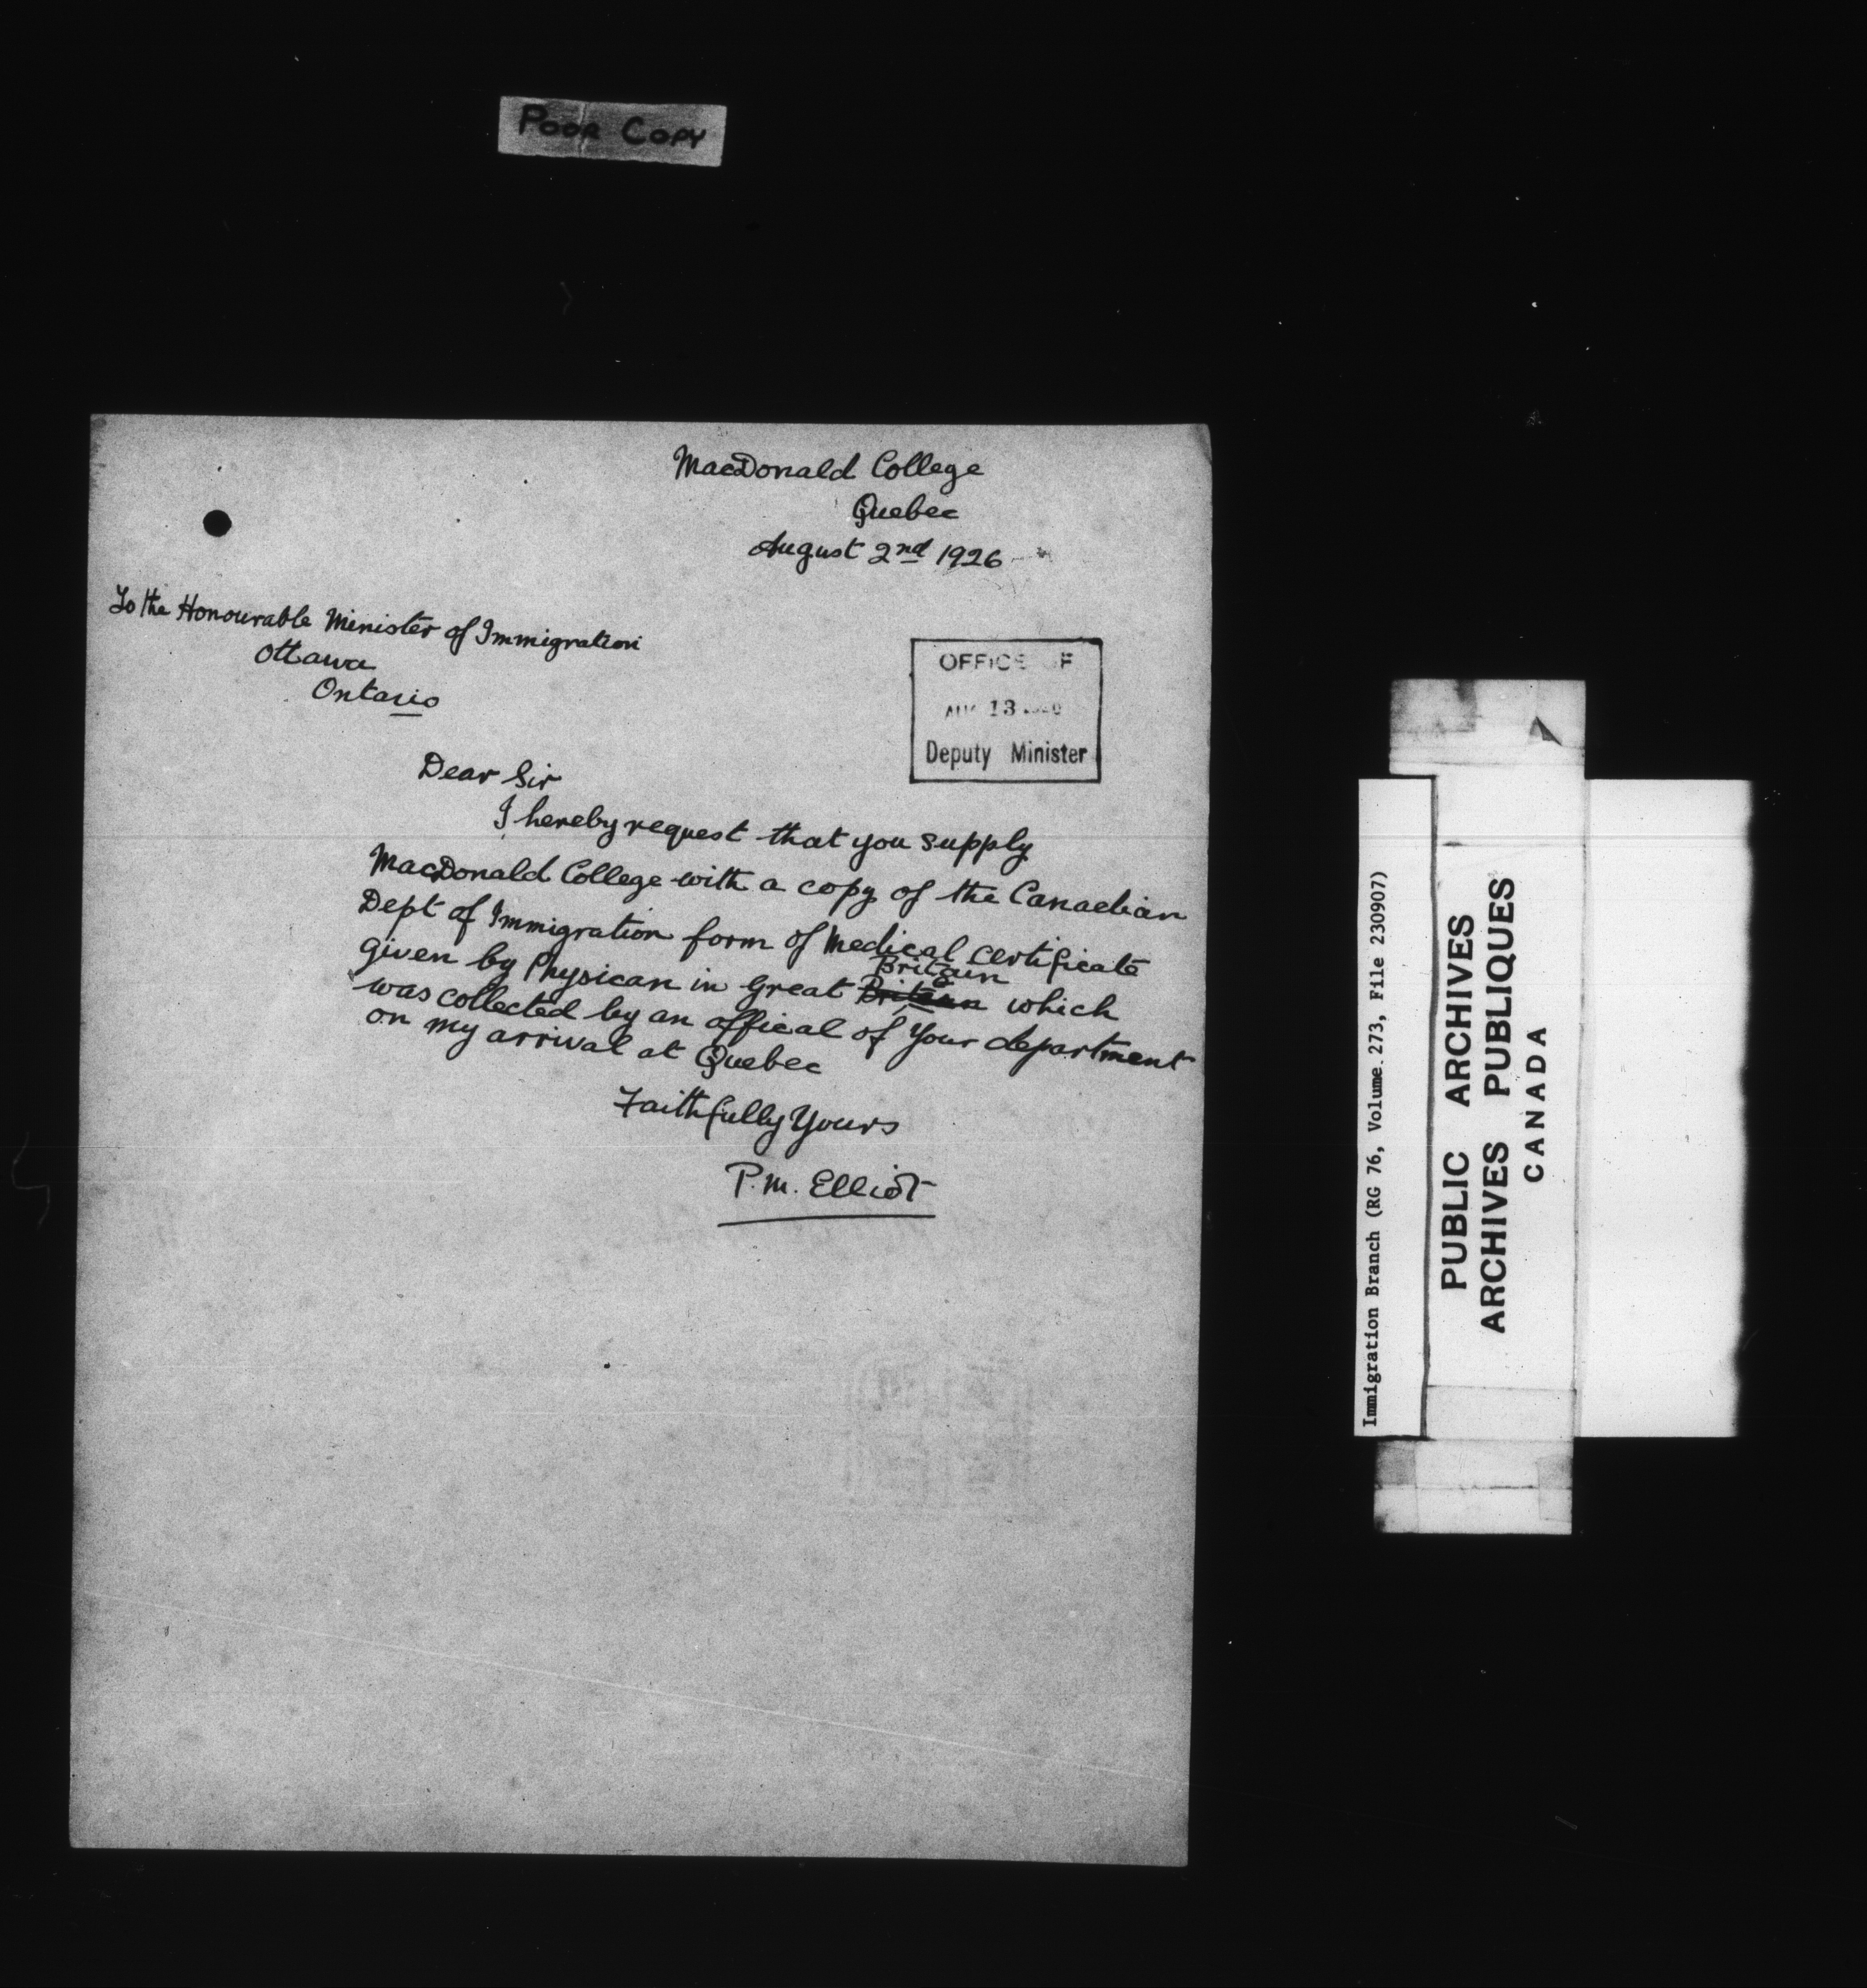 POOR COPY
MacDonald College
Quebec
August 2nd 1926
To the Honourable Minister of Immigration
Ottawa
Ontario
OFFICE OF
AUG 13
Deputy Minister
Dear Sir
I hereby request that you supply
MacDonald College with a copy of the Canadian
Dept of Immigration form of Medical certificate
given by Physican in Great Britain which
was collected by an offical of your department
on my arrival at Quebec
Faithfully Yours
P.M. Elliot
Immigration Branch (RG 76, Volume 273, File 230907)
PUBLIC ARCHIVES
ARCHIVES PUBLIQUES
CANADA